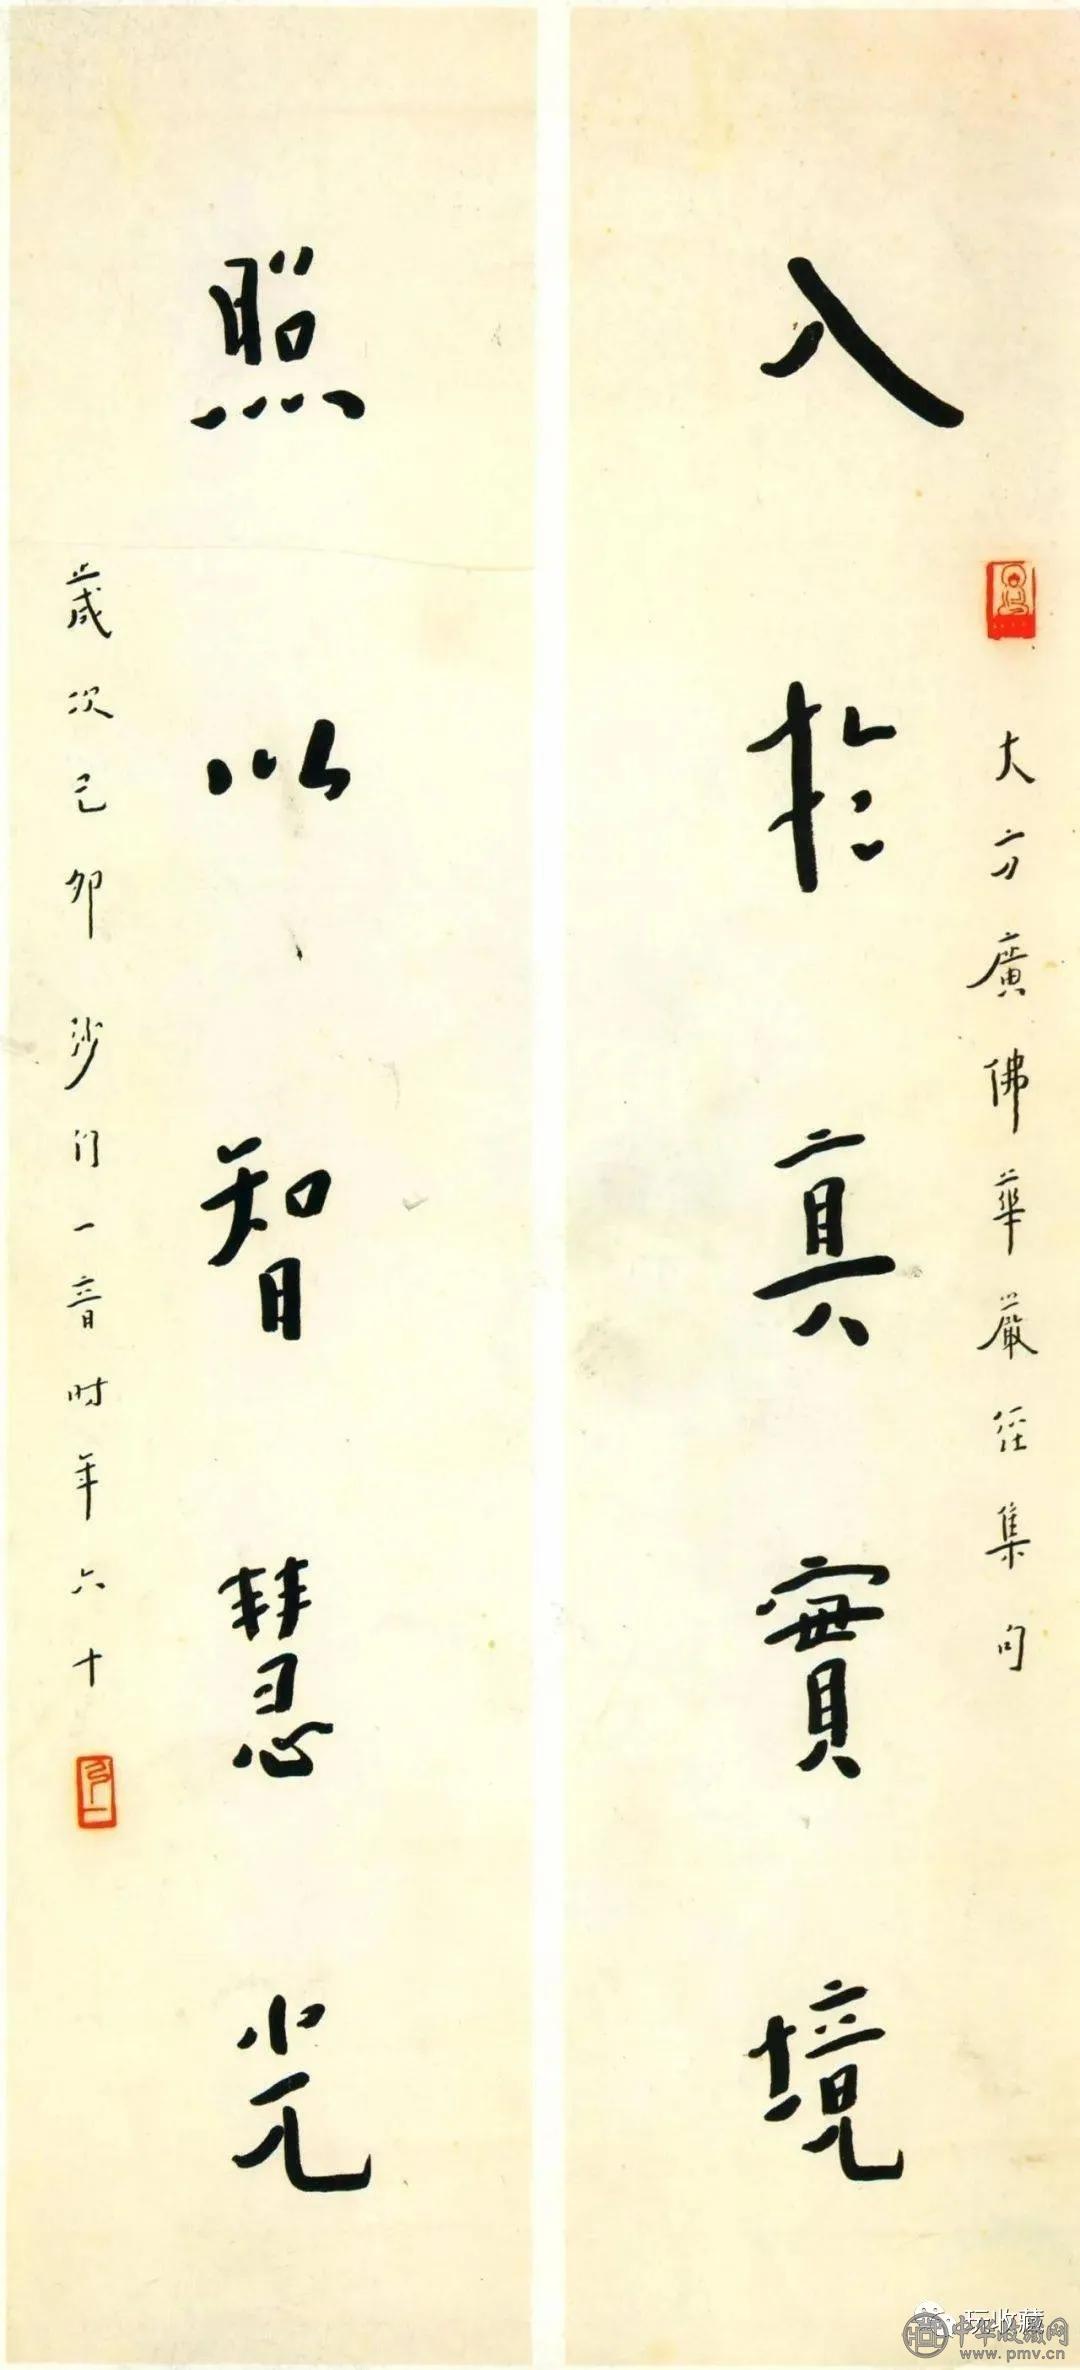 大方廣佛華嚴經集句
入於真實境
照以智慧光
歲次己卯沙门一音时年六十
玩收藏
中华收藏网
www.pmv.cn